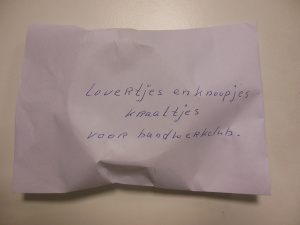 Lovertjes en knoopjes
kraaltjes
voor handwerkclub.